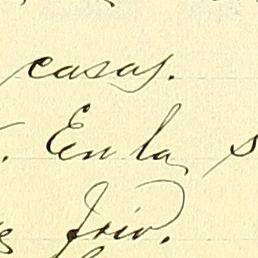 casas.
. En la s
frio.